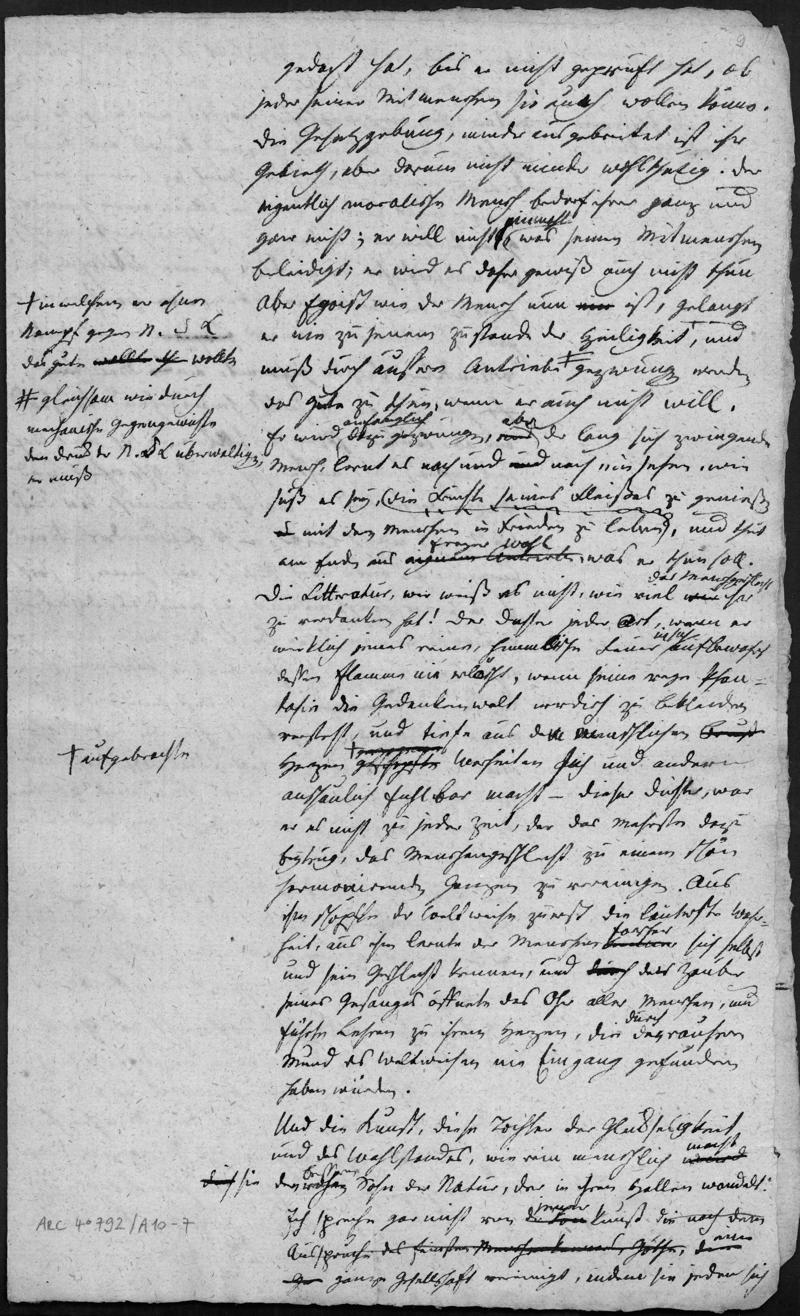 9
gedacht hat, bis er nicht geprüft hat, ob
jeder seiner Mitmenschen sie auch wollen könne.
Die Gesetzgebung, minder ausgebreitet ist ihr
Gebieth, aber darum nicht minder wohlthätig. Der
eigentlich moralische Mensch bedarf ihrer ganz und
gar nicht; er will nicht, was seinen Mitmenschen
beleidigt; er wird es daher gewiß auch nicht thun
Aber Egoist wie der Mensch nun ist, gelangt
er nie zu jenem Zustande der Heiligkeit, und
muß durch äussere Antriebe gezwungen werden
das gute zu thun, wenn er auch nicht will.
Er wird anfänglich dazu gezwungen, aber der lang sich zwingende
Mensch lernt es nach und nach einsehen, wie
süß es sey, die Früchte seines Fleißes zu genießen
mit den Menschen in Frieden zu leben, und thut
am Ende aus freyer Wahl, was er thun soll.
Die Litteratur, wer weiß es nicht, wie viel das Menschengeschlecht ihr
zu verdanken hat! Der Dichter jeder Art, wenn er
wirklich jenes reine, himmlische Feuer in sich aufbewahrt
dessen Flamme nie erlöscht, wenn seine rege Phan-
tasie die Gedankenwelt zu bekleiden
versteht, und tiefe aus dem menschlichen
Herzen Wahrheiten sich und andern
anschaulich fühlbar macht – dieser Dichter, war
er es nicht zu jeder Zeit, der das Mehrste dazu
beytrug, das Menschengeschlecht zu einem schön
harmonirenden Ganzen zu vereinigen. Aus
ihm schöpfte der Weltweise zuerst die lauterste Wahr-
heit, aus ihm lernte der Menschenforscher sich selbst
und sein Geschlecht kennen, und der Zauber
seines Gesanges öffnete das Ohr aller Menschen, und
führte Lehren zu ihrem Herzen, die durch den rauhern
Mund des Weltweisen nie Eingang gefunden
haben würden.
Und die Kunst, diese Tochter der Glückseligkeit
und des Wohlstandes, wie rein menschlich macht
sie den Sohn der Natur, der in ihren Hallen wandelt.
Ich spreche gar nicht von jener Kunst die nach dem
Ausspruche des feinsten Menschenkenners, Göthe,
ganze Gesellschaft vereinigt, indem sie jeden sich
† in welchem er ohne
Kampf gegen N. u. L
das gute wollte
# gleichsam wie durch
mechanische Gegengewichte
den Druck der N. u. L überwältigen
er muß
† aufgebrachte
ARC 4° 792/A10-7